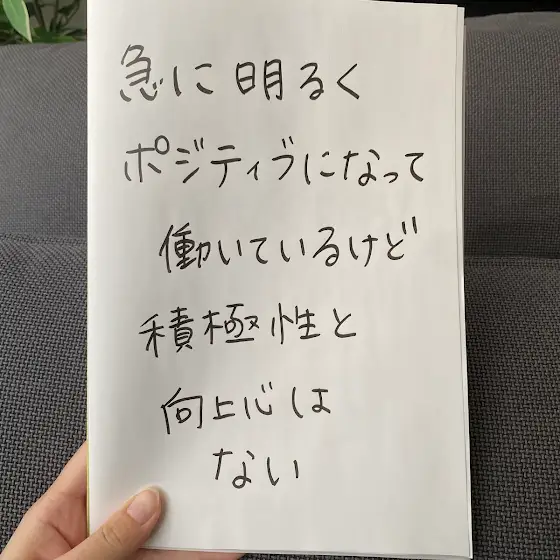 急に明るく
ポジティブになって
働いているけど
積極性と
向上心は
ない